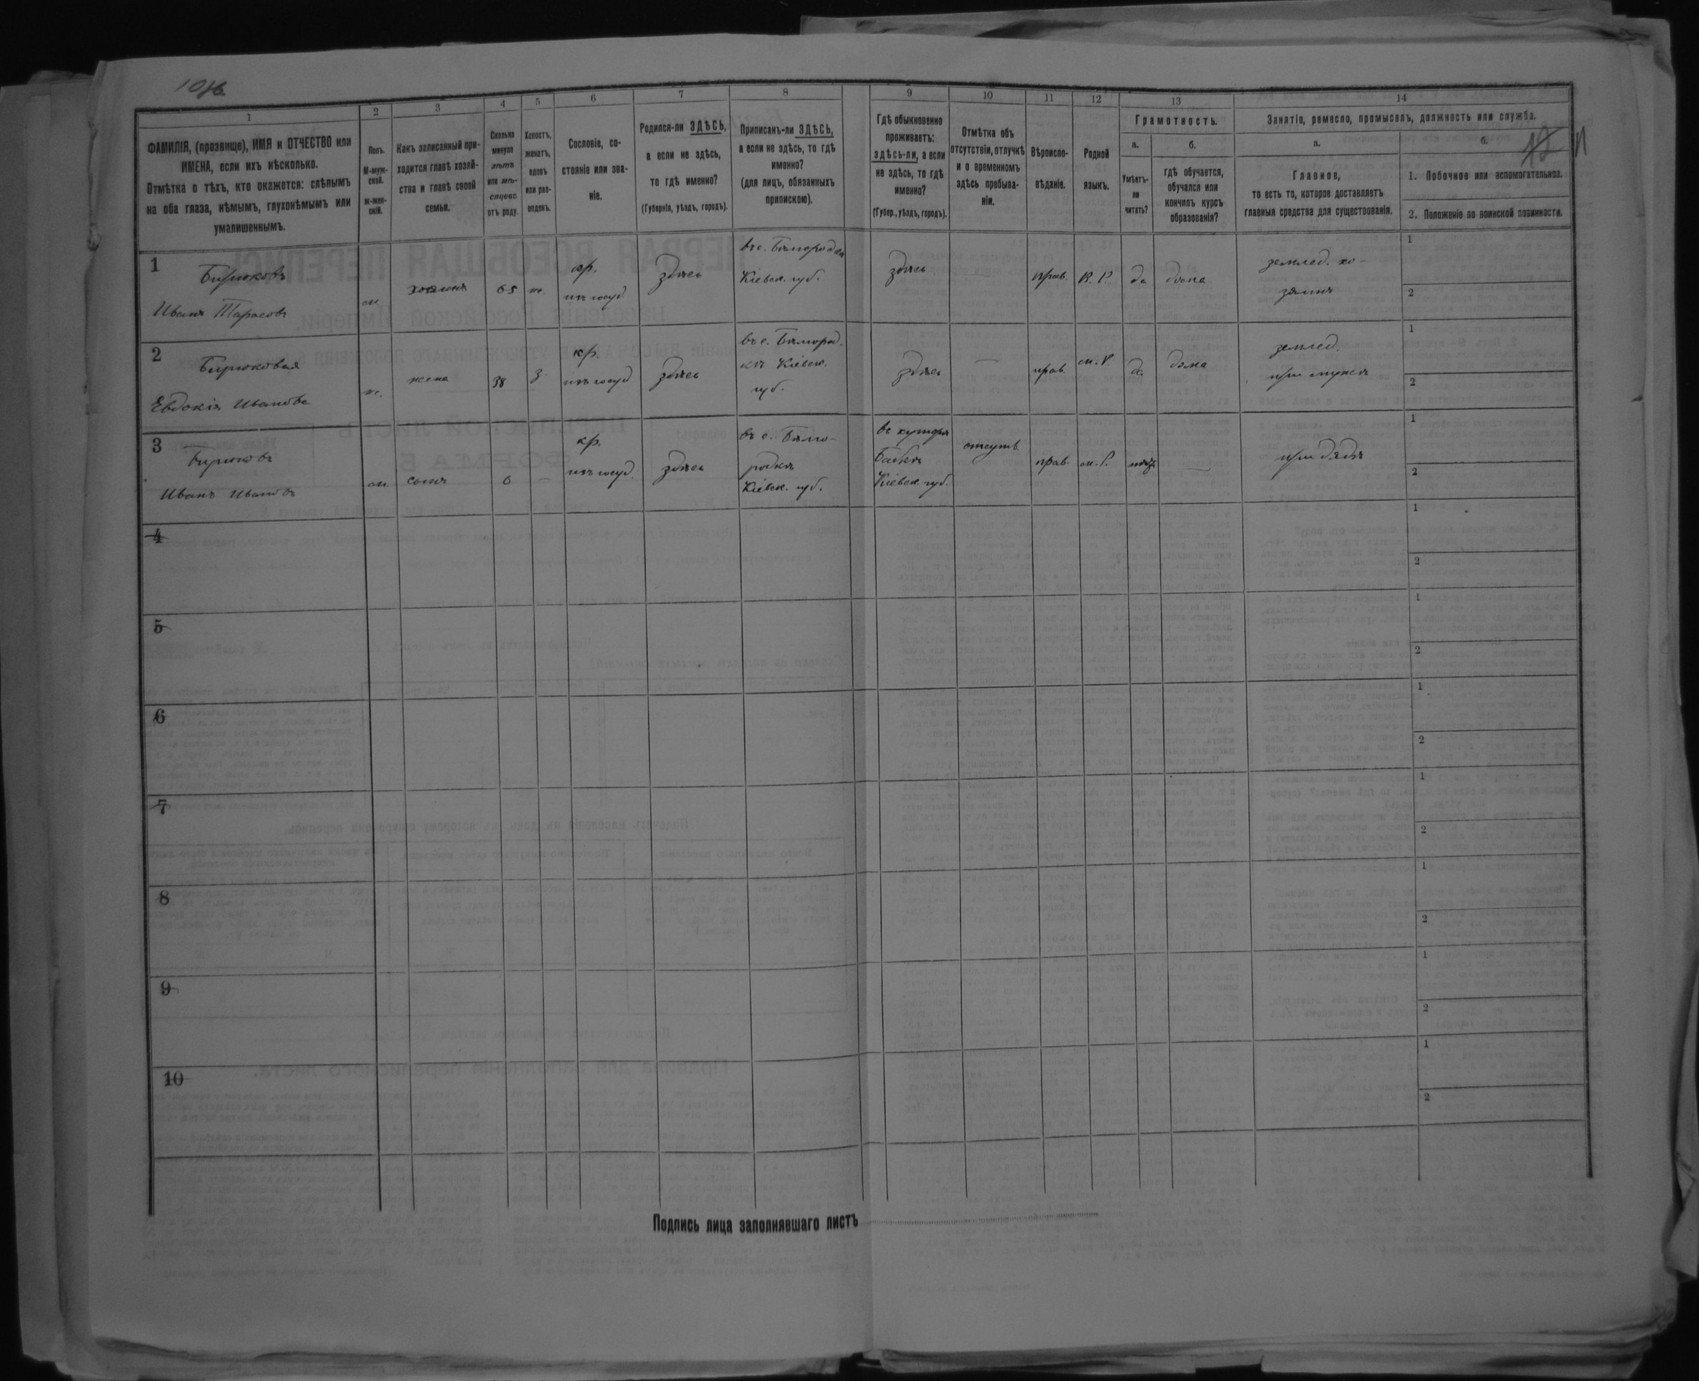 1
2
3
4
5
6
7
8
9
10
11
12
13
14
ФАМИЛІЯ, (прозвище), ИМЯ и ОТЧЕСТВО или
ИМЕНА, если ихъ нѣсколько.
Отмѣтка о тѣхъ, кто окажется: слѣпымъ
на оба глаза, нѣмымъ, глухонѣмымъ или
умалишеннымъ.
Полъ.
М-муж-
ской.
ж-жен-
скій.
Какъ записанный при-
ходится главѣ хозяй-
ства и главѣ своей
семьи.
Сколько
минуло
лѣтъ
или мѣ-
сяцевъ
отъ роду.
Холостъ,
женатъ,
вдовъ
или раз-
веденъ.
Сословіе, со-
стояніе или зва-
ніе.
Родился-ли ЗДѢСЬ,
а если не здѣсь,
то гдѣ именно?
(Губернія, уѣздъ, городъ).
Приписанъ-ли ЗДѢСЬ,
а если не здѣсь, то гдѣ
именно?
(для лицъ, обязанныхъ
припискою).
Гдѣ обыкновенно
проживаетъ:
здѣсь-ли, а если
не здѣсь, то гдѣ
именно?
(Губер., уѣздъ, городъ).
Отмѣтка объ
отсутствіи, отлучкѣ
и о временномъ
здѣсь пребыва-
ніи.
Вѣроиспо-
вѣданіе.
Родной
языкъ.
Грамотность.
а.
Умѣетъ-
ли
читать?
б.
гдѣ обучается,
обучался или
кончилъ курсъ
образованія?
Занятіе, ремесло, промыселъ, должность или служба.
а.
Главное,
то есть то, которое доставляетъ
главныя средства для существованія.
б.
1. Побочное или вспомогательное.
2. Положеніе по воинской повинности.
1
Бирюковъ
Иванъ Тарасовъ
м
хозяинъ
65
ж.
кр.
изъ госуд
здѣсь
въ с. Бѣлогородкѣ
Кіевск. губ.
здѣсь
прав.
да
дома
землед. хо-
зяинъ
1
2
2
Бирюковая
Евдокія Иванова
ж.
жена
58
з.
кр.
изъ госуд
здѣсь
въ с. Бѣлогород.
кѣ Кіевск.
губ.
здѣсь
—
прав.
м. Р.
да
дома
землед.
при мужѣ
1
2
3
Бирюковъ
Иванъ Ивановъ
м.
сынъ
—
кр.
изъ госуд.
здѣсь
въ с. Бѣло-
родкѣ
Кіевск. губ.
въ хуторѣ
Кіевск. губ.
отсутъ
прав.
м. Р.
—
1
2
4
1
2
5
1
2
6
1
2
7
1
2
8
1
2
9
1
2
10
1
2
Подпись лица заполнявшаго листъ